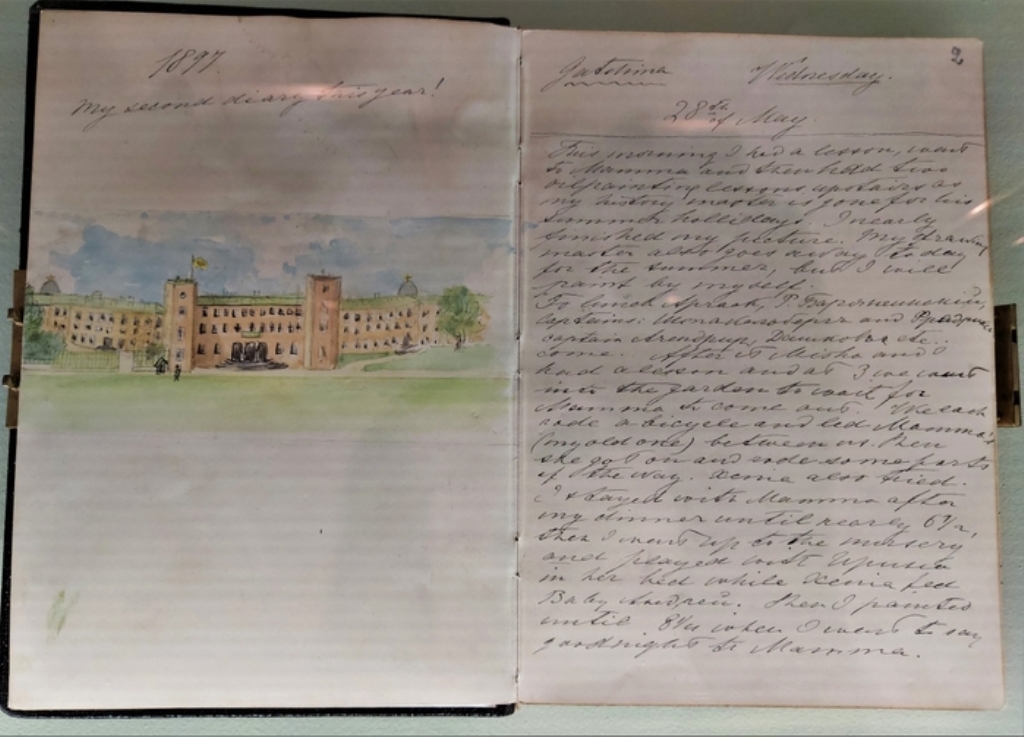 1897
My second diary this year!
2
Gatchina Wednesday.
28th of May.
This morning I had a lesson, went
to Mamma and then had two
oilpainting lessons upstairs as
my history master is gone for his
summer hollidays. I nearly
finished my picture. My drawing
master also goes away today
for the summer, but I will
paint by myself.
To lunch
captains: and
captain etc..
come. After it Misha and I
had a lesson and at 3 we went
into the garden to wait for
Mamma to come out. We each
rode a bicycle and led Mamma's
(my old one) between us. Then
she got on and rode some parts
of the way. Xenia also tried.
I stayed with Mamma after
my dinner until nearly 6½,
then I went up to the nursery
and played with
in her bed while Xenia fed
Baby Андрей. Then I painted
until 8½ when I went to say
goodnight to Mamma.